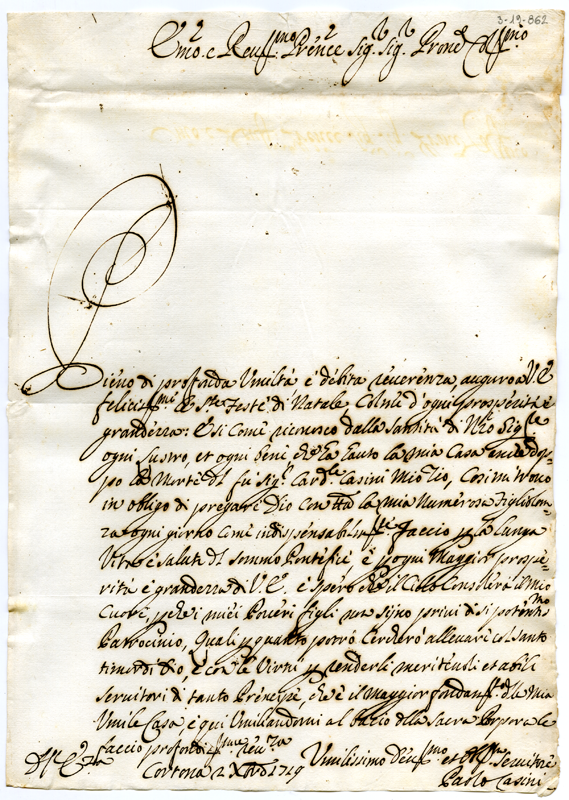 3-19-862
Em.º e Reu.mo Prencē Sig.r Sig.r Pron.e Col.mo
Pieno di profonda Vmiltà, e debita reuerenza, auguro a V.E
felicis.mi le S.te Feste di Natale, Colme d'ogni prosperità, e
grandezza: E si come riconosco dalla Santità di N̄ro Sig.re
ogni lustro, et ogni bene che ha hauto la mia Casa anco dop-
po la Morte del fù Sig.r Card.le Casini Mio Zio, Cosi mi trouo
in obligo di pregare Dio con tt.a la mia Numerosa figliolan-
za ogni giorno come indispensabilm.te faccio p la lunga
Vita e salute del sommo Pontefice e p ogni Maggior prospe-
rità e grandezza di V.E. e spero che il Cielo Consolerà il mio
Cuore, p che i miei Poueri figli non sijno priui di si potente
Patrocinio, Quali p quanto potrò Cercherò alleuare col Santo
timor di Dio, e con le Virtù p renderli meriteuoli et abili
seruitori di tanto Prencipe, che è il Maggior fondam.to della Mia
Vmile Casa, e qui Vmiliandomi al bacio della Sacra Porpora le
faccio profondis.ma reu.za
D V. E.za
Cortona 2 Xbre 1719
Vmilissimo Deu.mo et Seruitore
Paolo Casini